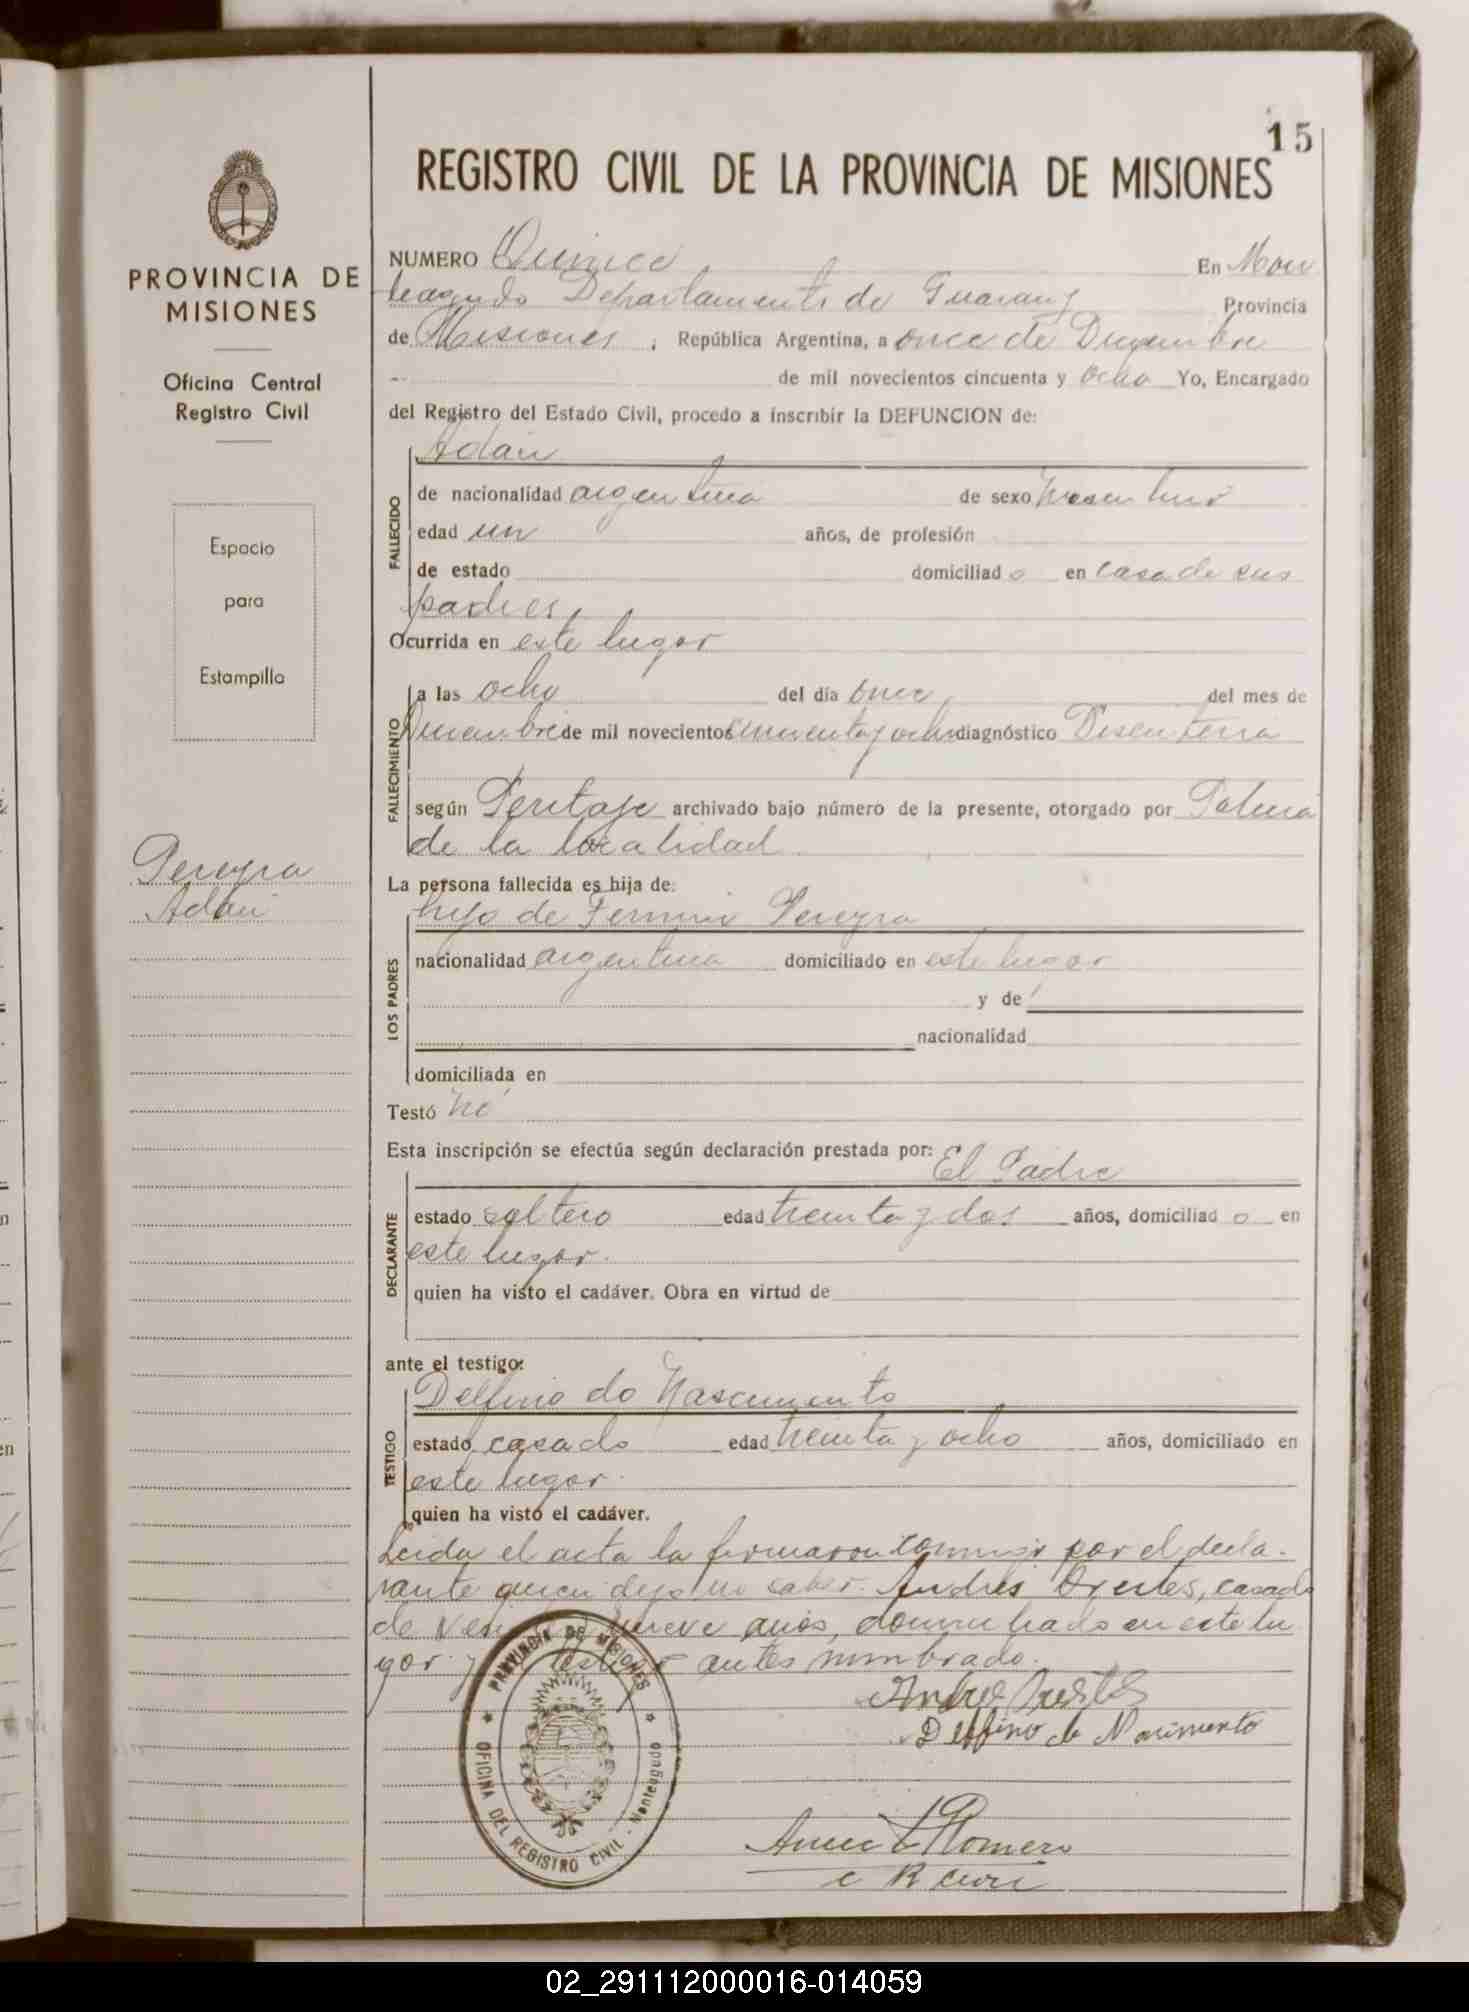 15
REGISTRO CIVIL DE LA PROVINCIA DE MISIONES
PROVINCIA DE
MISIONES
Oficina Central
Registro Civil
Espacio
para
Estampilla
Pereyra
Adan
NUMERO Quince En Mon
teagudo Departamento de Guarany Provincia
de Misiones, República Argentina, a once de Diciembre
de mil novecientos cincuenta y ocho Yo, Encargado
del Registro del Estado Civil, procedo a inscribir la DEFUNCION de:
Adan
FALLECIDO
de nacionalidad argentina de sexo masculino
edad un años, de profesión
de estado domiciliad o en casa de sus
padres
Ocurrida en este lugar
FALLECIMIENTO
a las ocho del día once del mes de
Diciembre de mil novecientos cincuenta y ocho diagnóstico Disenteria
según Peritaje archivado bajo número de la presente, otorgado por Policia
de la localidad
La persona fallecida es hija de:
LOS PADRES
hijo de Fermin Pereyra
nacionalidad argentina domiciliado en este lugar
y de
nacionalidad
domiciliada en
Testó no
Esta inscripción se efectúa según declaración prestada por: El Padre
DECLARANTE
estado soltero edad treinta y dos años, domiciliad o en
este lugar.
quien ha visto el cadáver. Obra en virtud de
ante el testigo:
TESTIGO
Delfino do Nascimento
estado casado edad treinta y ocho años, domiciliado en
este lugar.
quien ha visto el cadáver.
Leida el acta la firmaron conmigo por el decla-
rante quien dijo no saber. Andres Orestes, casado
de nueve años, domiciliado en este lu
gar y antes nombrado.
PROVINCIA DE MISIONES
OFICINA DEL REGISTRO CIVIL - Monteagudo
Delfino do Nacimento
Romero
02_291112000016-014059